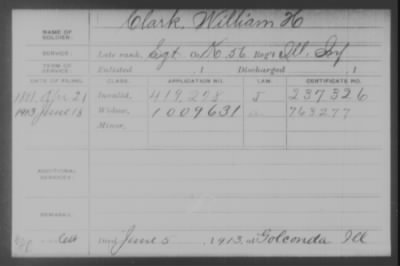 NAME OF SOLDIER: Clark, William H
SERVICE: Late rank, Sgt Co. K, 56 Reg't Ill. Inf
TERM OF SERVICE: Enlisted 1 Discharged 1
DATE OF FILING. CLASS. APPLICATION NO. LAW. CERTIFICATE NO.
1881, Apr 21 Invalid, 419,278 237326
1913 June 13 Widow, 1009631 763277
Minor,
ADDITIONAL SERVICES:
REMARKS:
Died June 5, 1913, at Golconda Ill